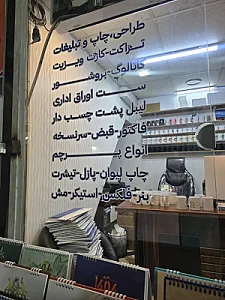 طراحی،چاپ و تبلیغات
تراکت-کارت ویزیت
کاتالوگ-بروشور
ست اوراق اداری
لیبل پشت چسب دار
فاکتور-قبض-سرنسخه
انواع پرچم
چاپ لیوان-پازل-تیشرت
بنر-فلکس-استیکر-مش